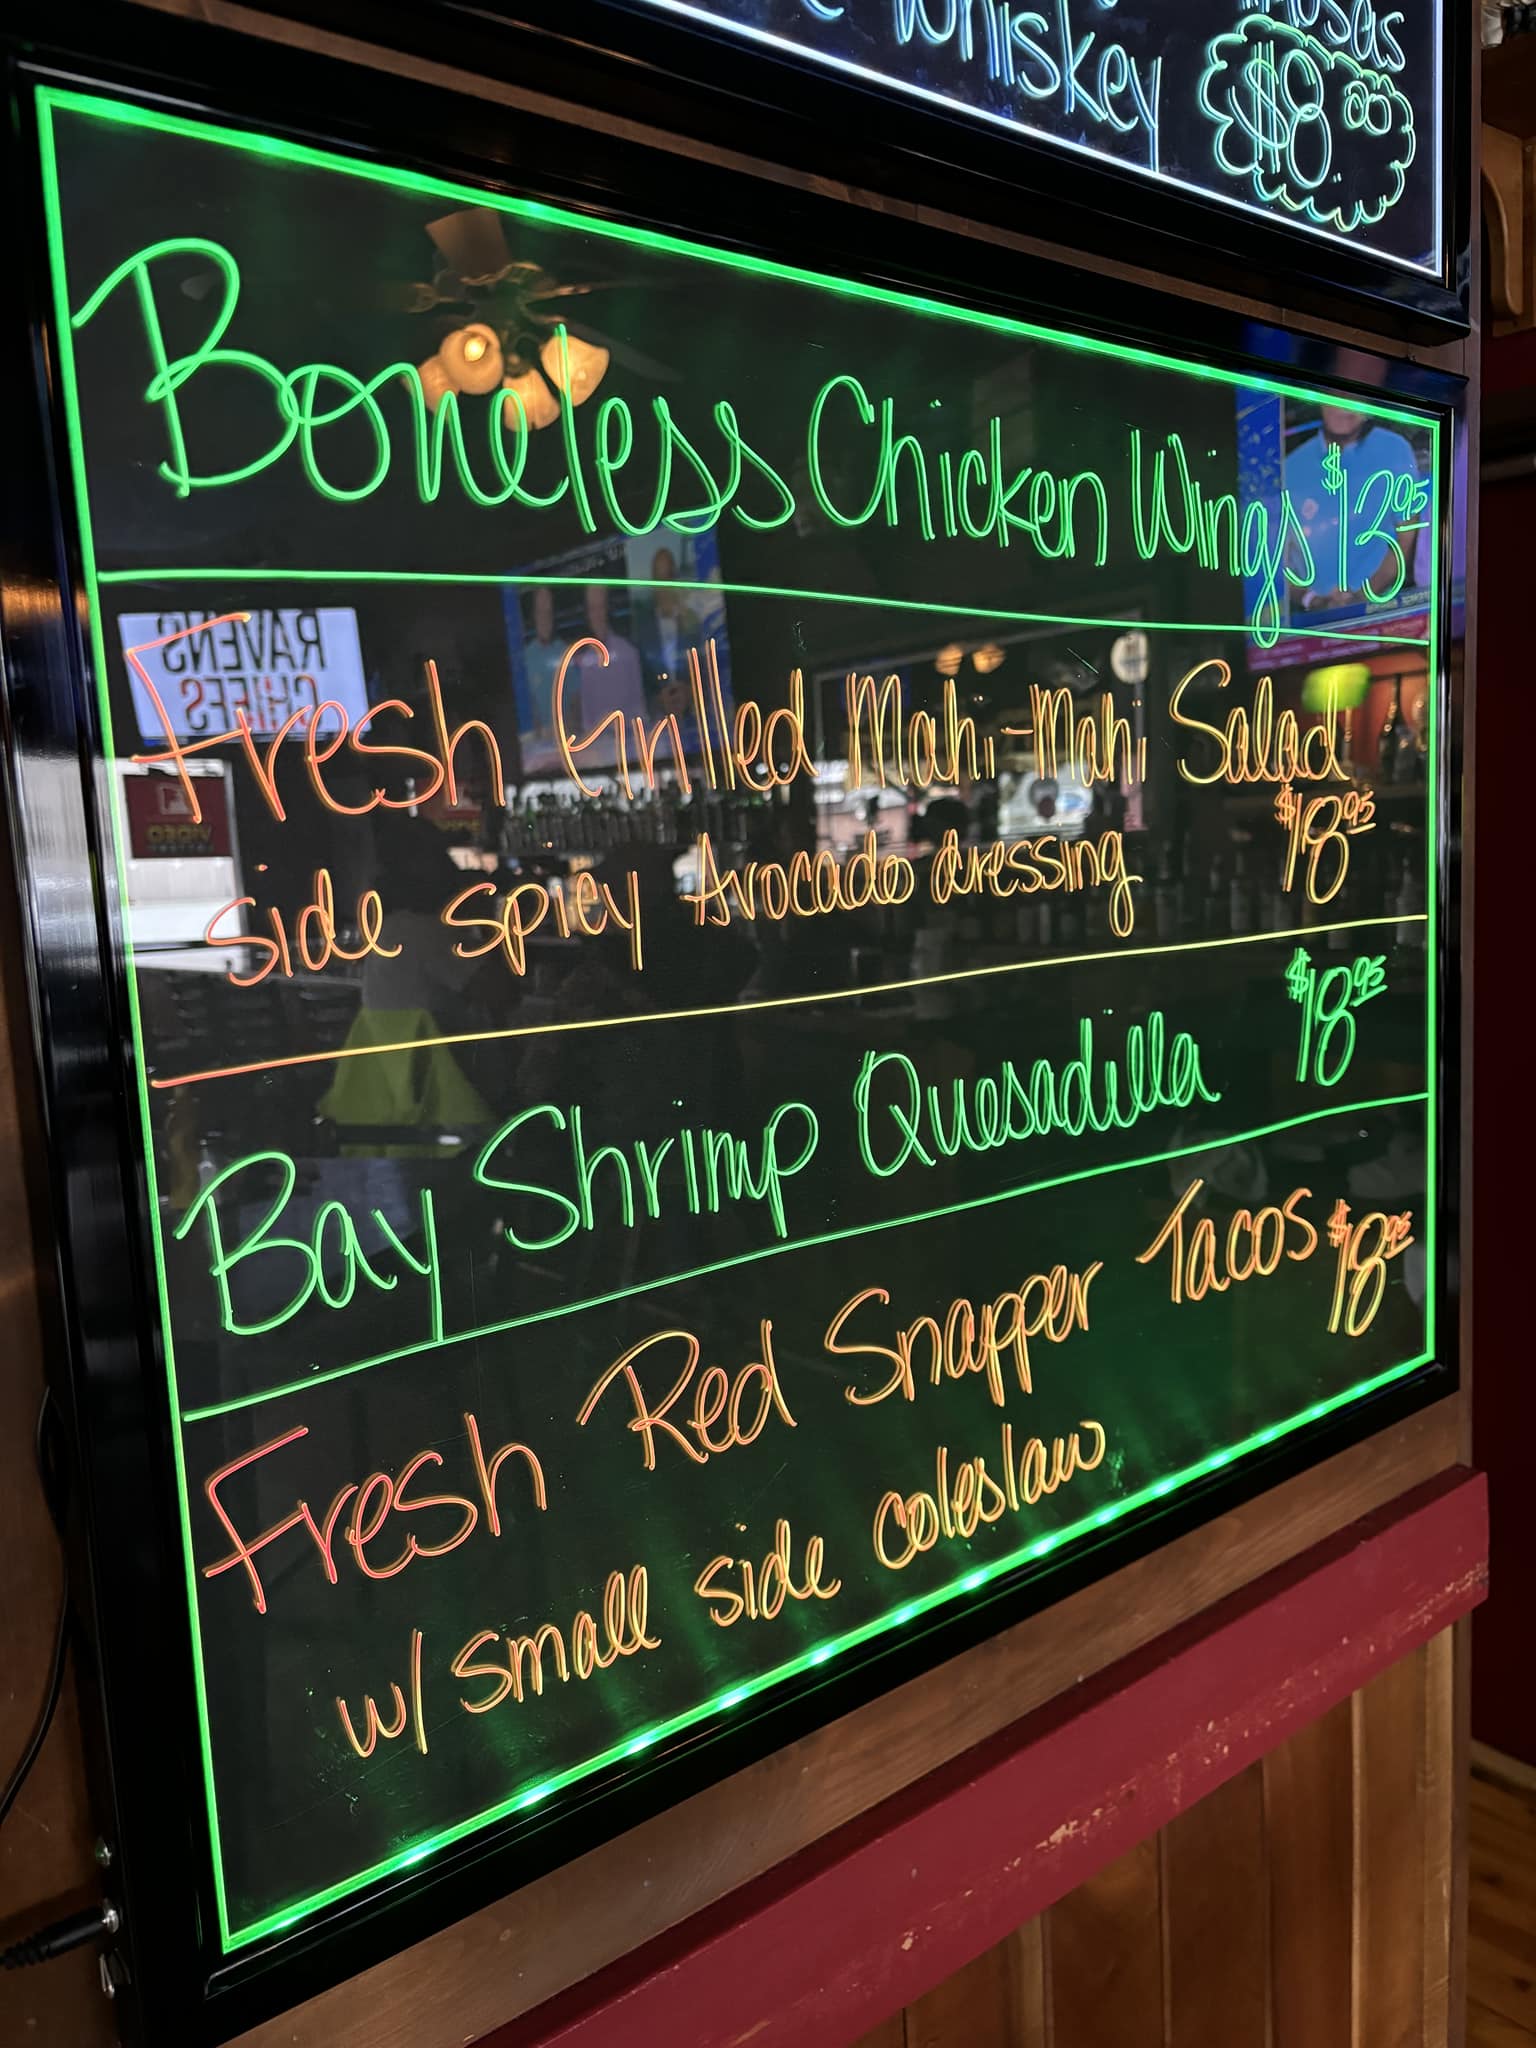 Whiskey
$8.00
Boneless Chicken Wings $13.95
Fresh Grilled Mahi-Mahi Salad
side spicy Avocado dressing $18.95
Bay Shrimp Quesadilla $18.95
Fresh Red Snapper Tacos $18.95
w/ small side coleslaw
RAVENS
CHIEFS
VIDEO
LOTTERY